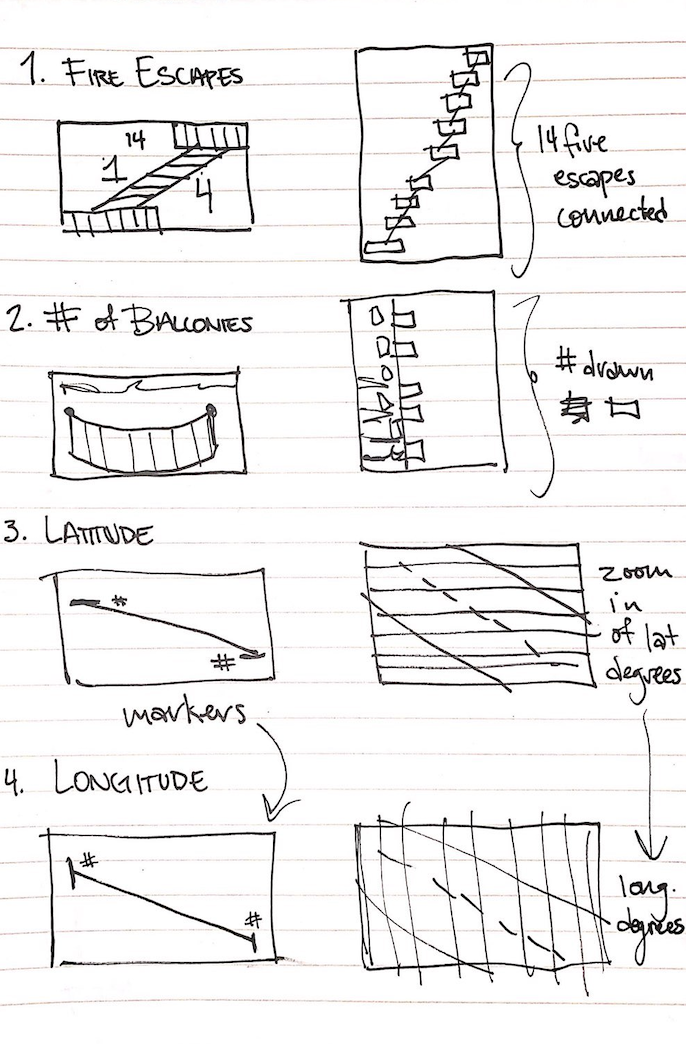 1. FIRE ESCAPES
14
1
4
14 fire
escapes
connected
2. # of BALLCONIES
# drawn
3. LATITUDE
#
#
zoom
in
of lat
degrees
markers
4. LONGITUDE
#
#
long.
degrees